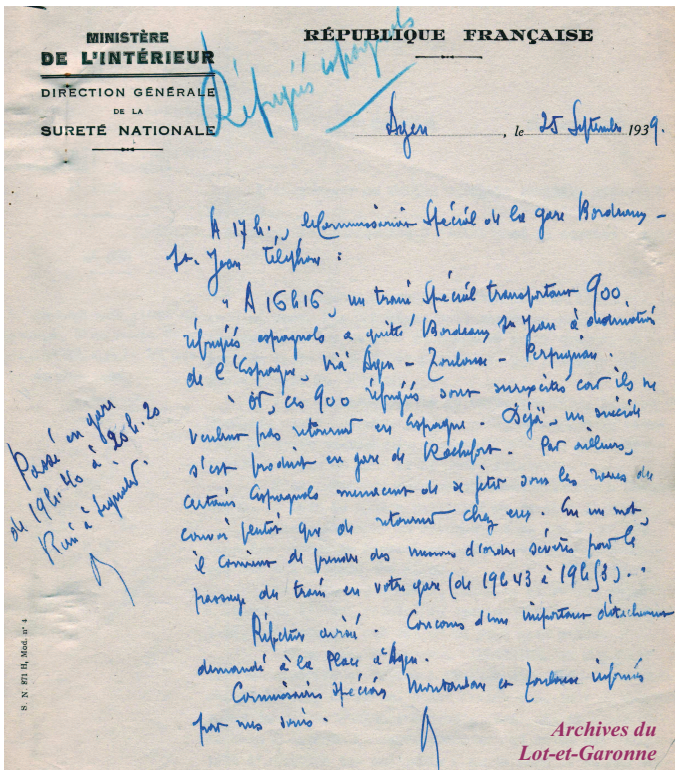 MINISTÈRE
DE L'INTÉRIEUR
DIRECTION GÉNÉRALE
DE LA
SURETÉ NATIONALE
RÉPUBLIQUE FRANÇAISE
Réfugiés espagnols
Agen, le 25 Septembre 1939.
A 17 h., le Commissaire Spécial de la gare Bordeaux-
St. Jean téléphone :
" A 16h16, un train spécial transportant 900
réfugiés espagnols a quitté Bordeaux St Jean à destination
de l'Espagne, via Agen - Toulouse - Perpignan.
" Or, ces 900 réfugiés sont surexcités car ils ne
veulent pas retourner en Espagne. Déjà, un suicide
s'est produit en gare de Rochefort. Par ailleurs,
certains Espagnols menacent de se jeter sous les roues du
convoi plutôt que de retourner chez eux. En un mot,
il convient de prendre des mesures d'ordre sévères pour le
passage du train en votre gare (de 19h43 à 19h53). "
Préfecture avisée. Concours d'un important détachement
demandé à la Place d'Agen.
Commissaires spéciaux Montauban et Toulouse informés
par mes soins.
Passé en gare
de 19h.40 à 20h.20
Rien à signaler.
S. N. 871 H, Mod. n° 4
Archives du
Lot-et-Garonne